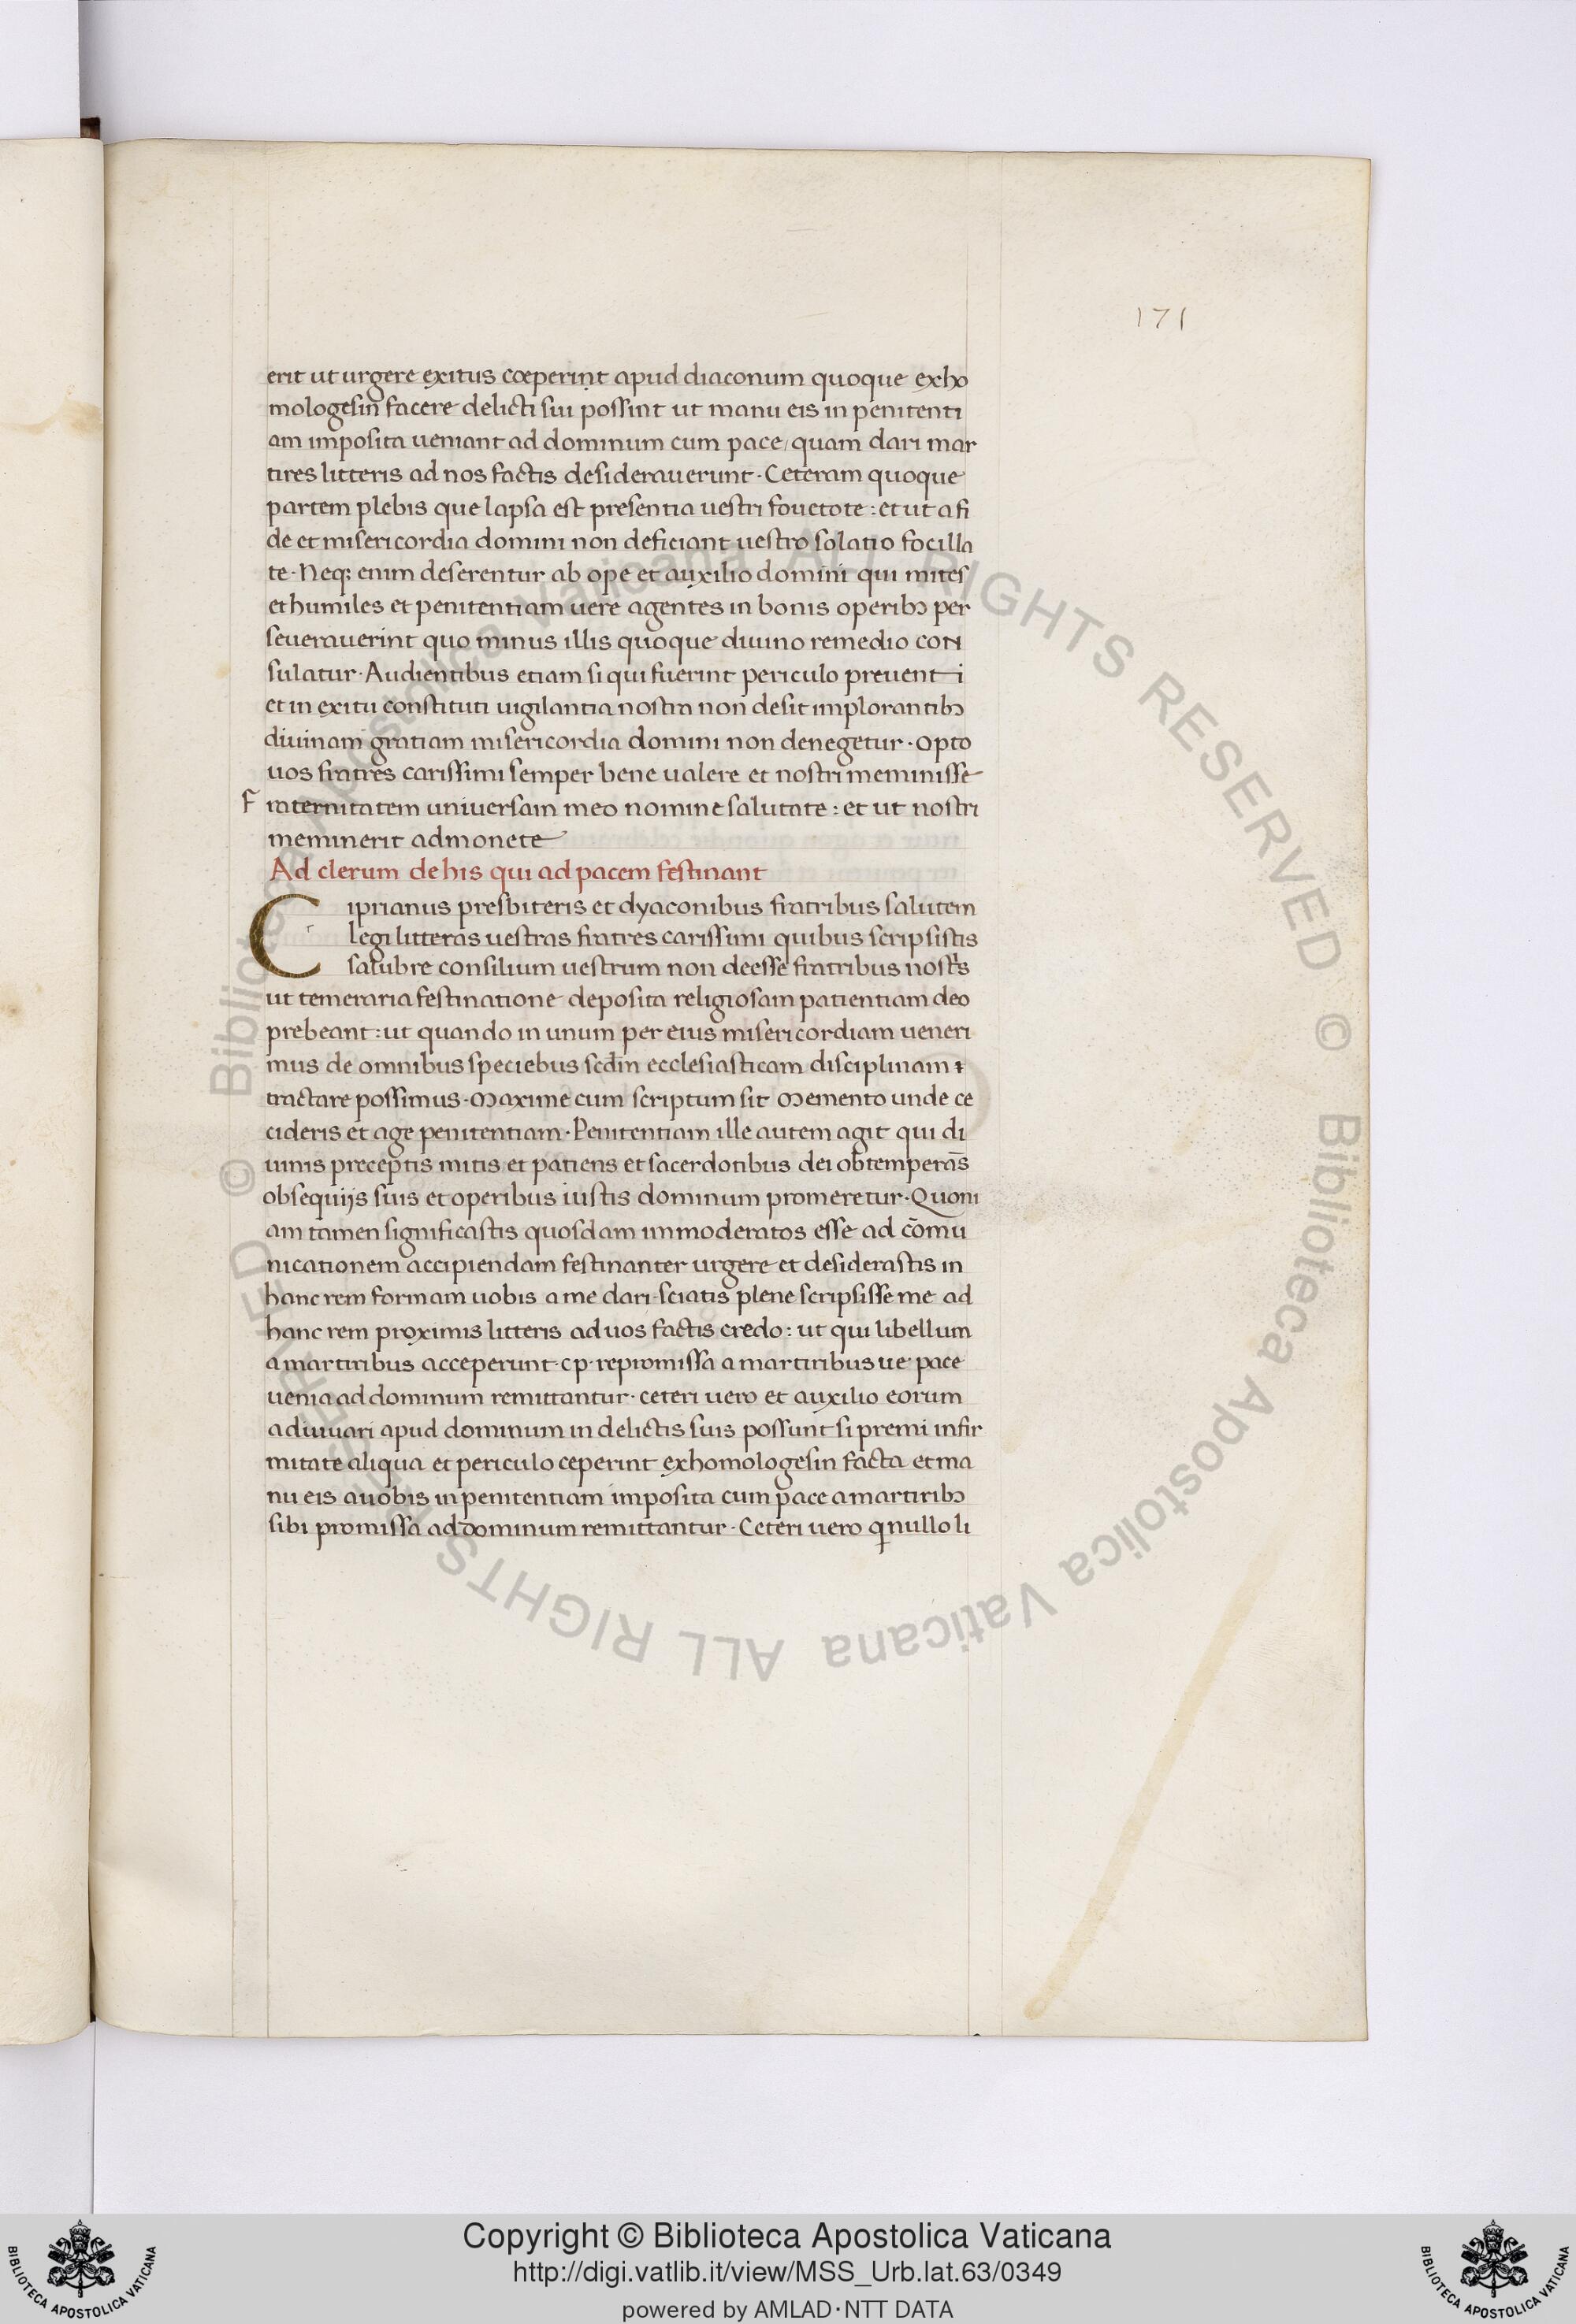 171
erit ut urgere exitus cœperint apud diaconum quoque exho
mologesin facere delicti sui possint ut manu eis in penitenti
am imposita veniant ad dominum cum pace, quam dari mar
tires litteris ad nos factis desideraverunt · Ceteram quoque
partem plebis que lapsa est presentia vestri fouetote : et ut a fi
de et misericordia domini non deficiant uestro solatio focilla
te · Neq; enim deserentur ab ope et auxilio domini qui mites
et humiles et penitentiam uere agentes in bonis operibꝫ per
seuerauerint quo minus illis quoque diuino remedio con
sulatur · Audientibus etiam si qui fuerint periculo preuenti
et in exitu constituti uigilantia nostra non desit implorantibꝫ
diuinam gratiam misericordia domini non denegetur · Opto
uos fratres carissimi semper bene ualere et nostri meminisse
Fraternitatem universam meo nomine salutate : et ut nostri
meminerit admonete
Ad clerum de his qui ad pacem festinant
Ciprianus presbiteris et dyaconibus fratribus salutem
legi litteras uestras fratres carissimi quibus scripsistis
salubre consilium uestrum non deesse fratribus nostrs
ut temeraria festinatione deposita religiosam patientiam deo
prebeant : ut quando in unum per eius misericordiam ueneri
mus de omnibus speciebus scdm̄ ecclesiasticam disciplinam
tractare possimus · Maxime cum scriptum sit Memento unde ce
cideris et age penitentiam · Penitentiam ille autem agit qui di
uinis preceptis mitis et patiens et sacerdotibus dei obtemperās
obsequijs suis et operibus iustis dominum promeretur · Quoni
am tamen significastis quosdam immoderatos esse ad cōmu
nicationem accipiendam festinanter urgere et desiderastis in
hanc rem formam uobis a me dari · sciatis plene scripsisse me ad
hanc rem proximis litteris ad uos factis credo : ut qui libellum
a martiribus acceperunt · c p · repromissa a martiribus ue pace
uenia ad dominum remittantur · ceteri uero et auxilio eorum
adiuuari apud dominum in delictis suis possunt si premi infir
mitate aliqua et periculo ceperint exhomologesin facta et ma
nu eis a uobis in penitentiam imposita cum pace a martiribꝫ
sibi promissa ad dominum remittantur · Ceteri uero q nullo li
© Biblioteca Apostolica Vaticana ALL RIGHTS RESERVED © Biblioteca Apostolica Vaticana ALL RIGHTS RESERVED
Copyright © Biblioteca Apostolica Vaticana
http://digi.vatlib.it/view/MSS_Urb.lat.63/0349
powered by AMLAD·NTT DATA
BIBLIOTECA APOSTOLICA VATICANA
BIBLIOTECA APOSTOLICA VATICANA